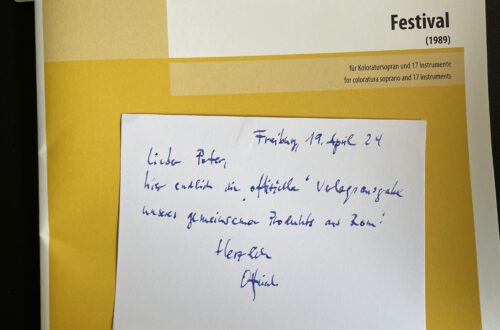 Festival
(1989)
für Koloratursopran und 17 Instrumente
for coloratura soprano and 17 instruments
Freiburg, 19. April 24
Lieber Peter,
hier endlich die „offizielle“ Verlagsausgabe
unseres gemeinsamen Produkts aus Rom!
Herzlich